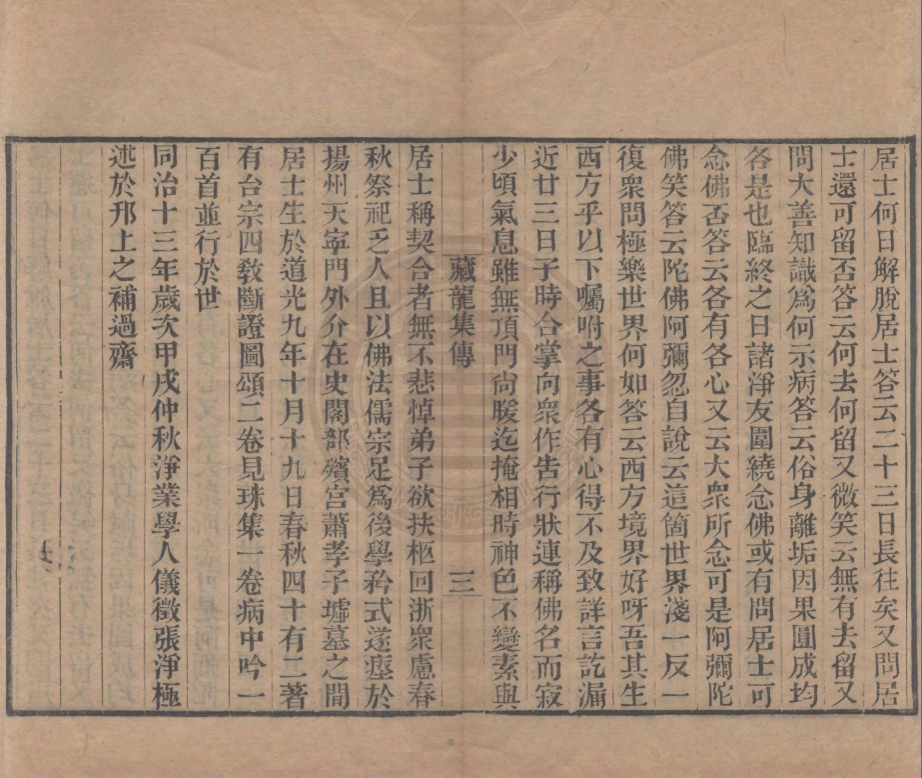 居士何日解脫居士答云二十三日長往矣又問居
士還可留否答云何去何留又微笑云無有去留又
問大善知識爲何示病答云俗身離垢因果圓成均
各是也臨終之日諸淨友圍繞念佛或有問居士可
念佛否答云各有各心又云大衆所念可是阿彌陀
佛笑答云陀佛阿彌忽自說云這箇世界淺一反一
復衆問極樂世界何如答云西方境界好呀吾其生
西方乎以下囑咐之事各有心得不及致詳言訖漏
近廿三日子時合掌向衆作吿行狀連稱佛名而寂
少頃氣息雖無頂門尙䐺迄掩相時神色不變素與
藏龍集傳 三
居士稱契合者無不悲悼弟子欲扶柩回浙衆慮春
秋祭祀乏人且以佛法儒宗足爲後學矜式遂塟於
揚州天寧門外介在史閣部殯宮蕭孝子墟墓之間
居士生於道光九年十月十九日春秋四十有二著
有台宗四敎斷證圖頌二卷見珠集一卷病中吟一
百首並行於世
同治十三年歲次甲戌仲秋淨業學人儀徵張淨極
述於邗上之補過齋